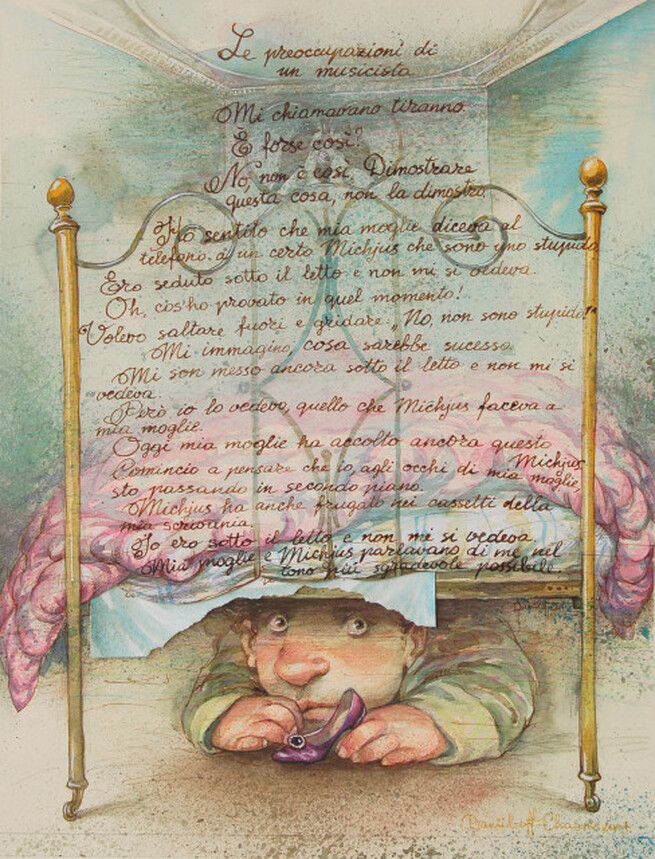 Le preoccupazioni di
un musicista
Mi chiamavano tiranno.
E forse così?
No, non è così. Dimostrare
questa cosa, non la dimostro.
Ho sentito che mia moglie diceva al
telefono a un certo Michjus che sono uno stupido.
Ero seduto sotto il letto e non mi si vedeva.
Oh, cos'ho provato in quel momento!
Volevo saltare fuori e gridare: „No, non sono stupido!"
Mi immagino, cosa sarebbe sucesso.
Mi son messo ancora sotto il letto e non mi si
vedeva.
Però io lo vedevo, quello che Michjus faceva a
mia moglie.
Oggi mia moglie ha accolto ancora questo
Michjus
Comincio a pensare che io, agli occhi di mia moglie,
sto passando in secondo piano.
Michjus ha anche frugato nei cassetti della
mia scrivania.
Io ero sotto il letto e non mi si vedeva.
Mia moglie e Michjus parlavano di me nel
tono più sgradevole possibile.